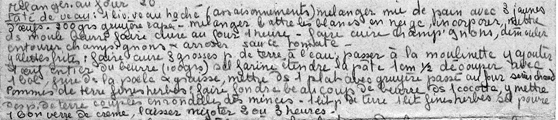 mélanger au four 20
Pâté de veau : 1 liv. veau haché (assaisonnements) mélanger mie de pain avec 3 jaunes
d'œufs - 300 grs gruyère rapé - mélanger battre les blancs en neige, incorporer, mettre
ds moule beurré faire cuire au four 1 heure - faire cuire champignons,
entourer champignons + arroser sauce tomate -
faire cuire 3 grosses p. de terre à eau, passer à la moulinette y ajouter
1 œuf entier, de beurre (100grs) farine étendre la pâte 1cm ½ découper avec
1 à la poêle à graisse, mettre ds 1 plat avec gruyère passer au four
Pommes de terre fines herbes : faire fondre beaucoup de beurre ds 1 cocotte, y mettre
de terre coupées en rondelles minces - 1 lit p. de terre 1 lit fines herbes sel poivre
1 bon verre de crème, laisser mijoter 2 ou 3 heures -